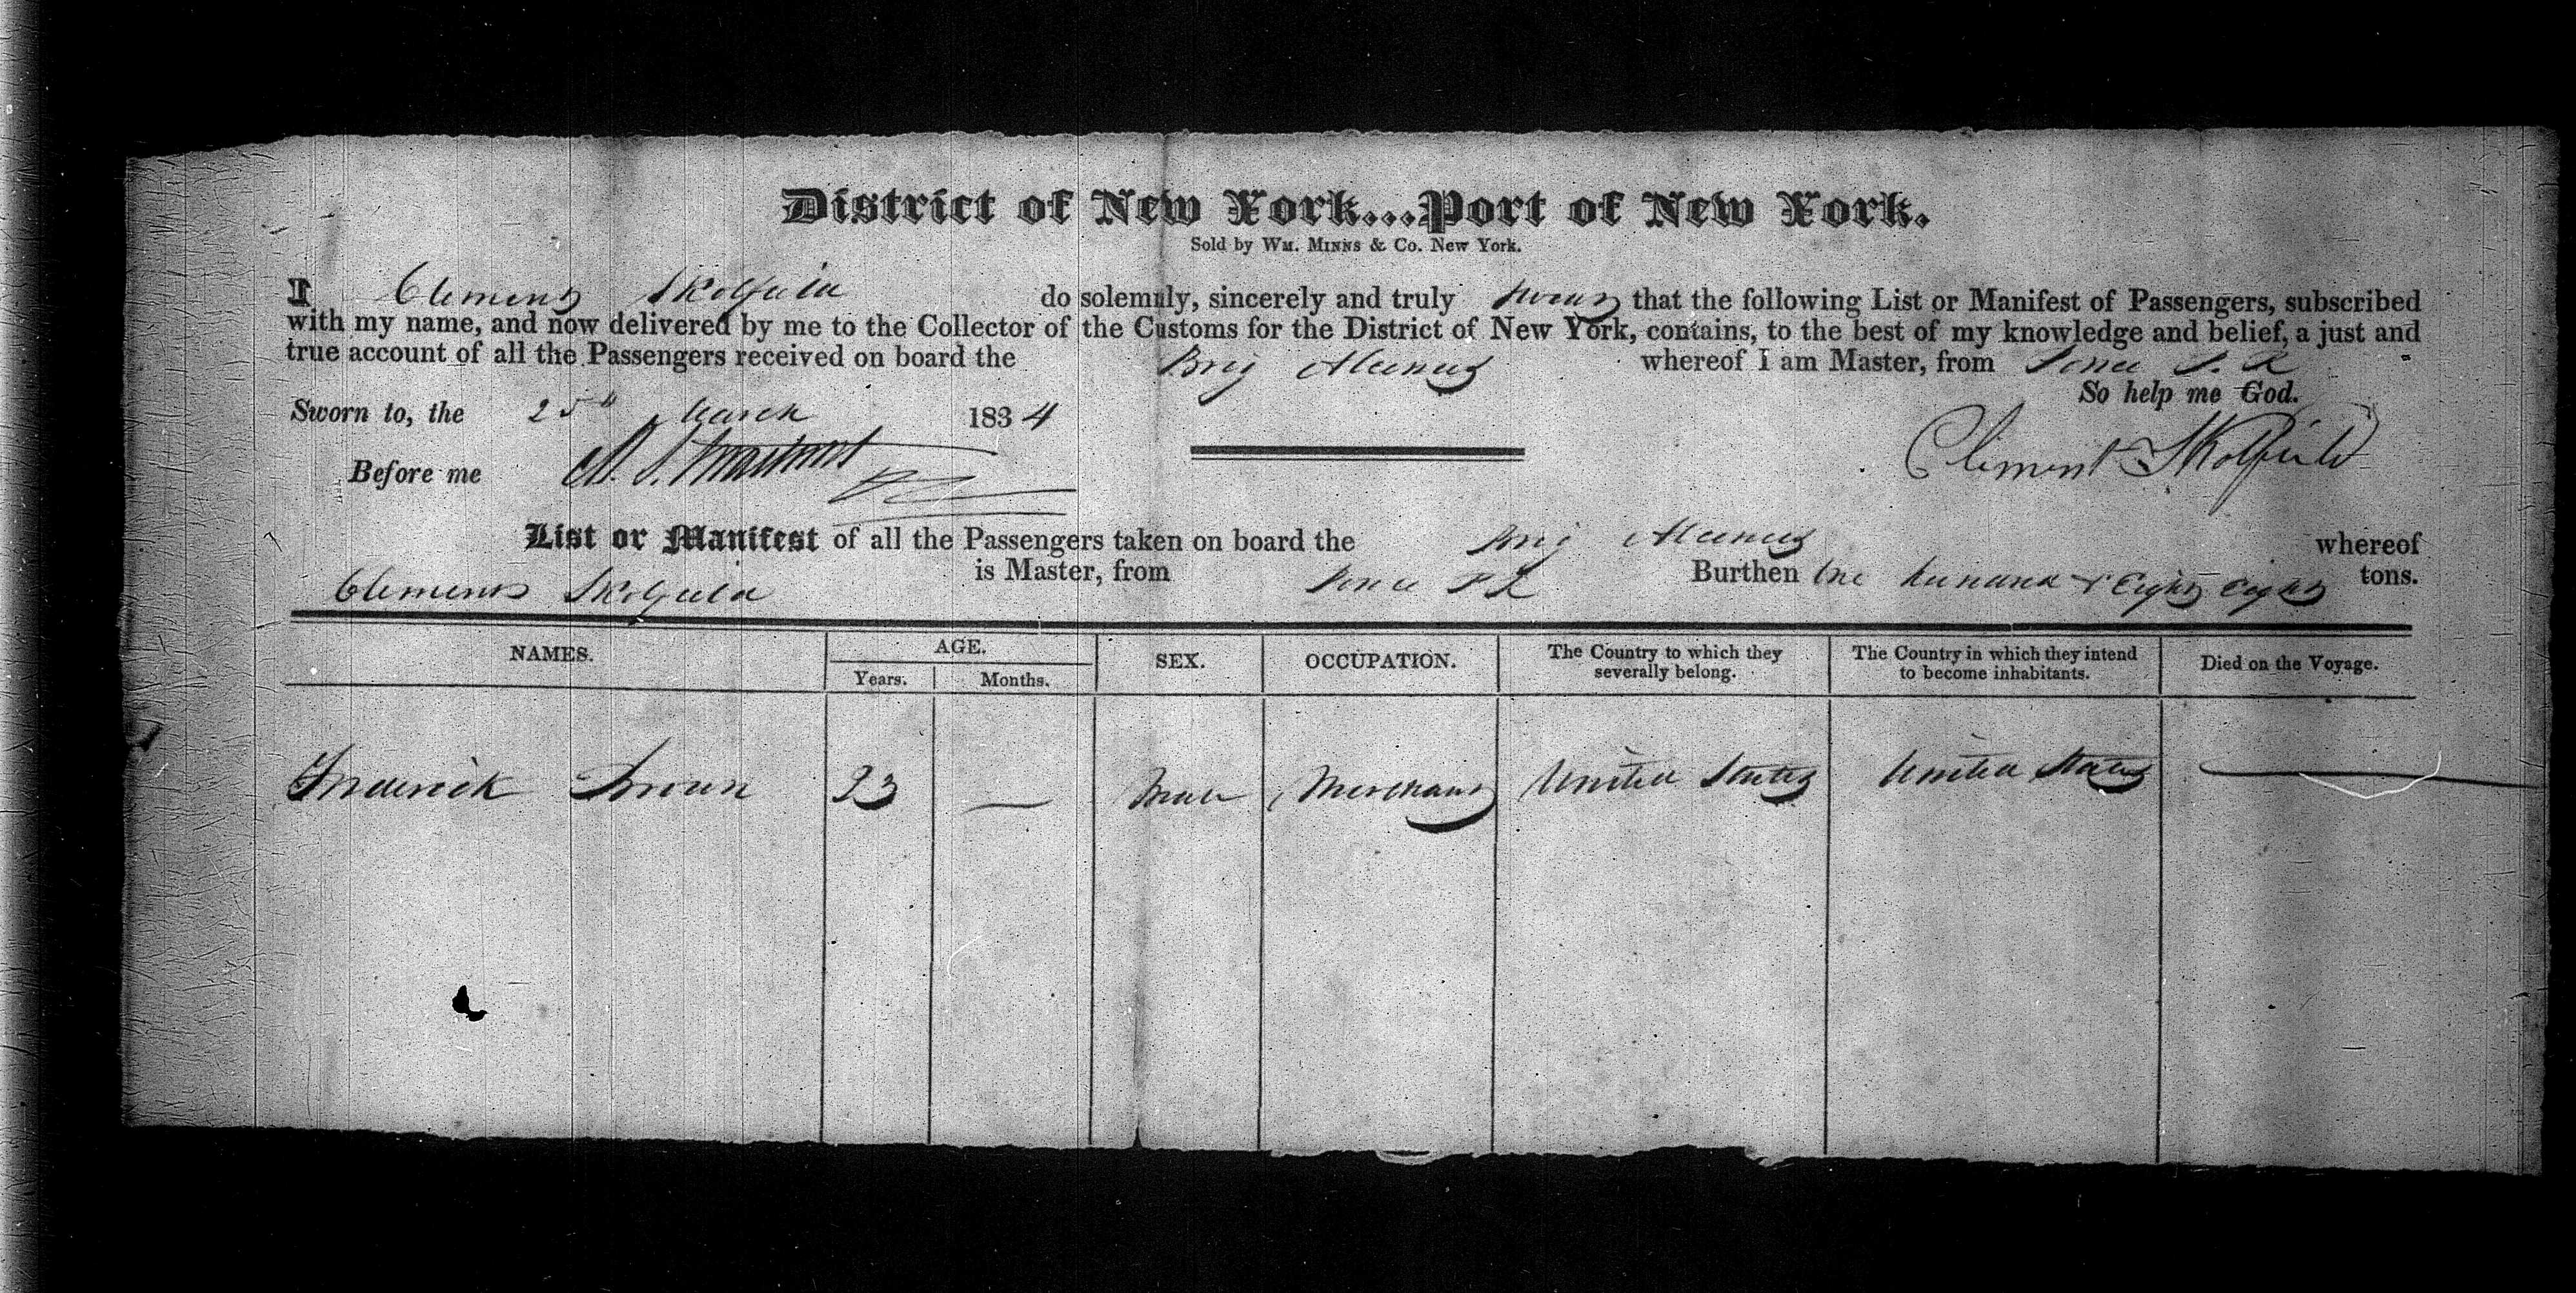 District of New York...Port of New York.
Sold by Wm. Minns & Co. New York.
I Clement Skolfield do solemnly, sincerely and truly swear that the following List or Manifest of Passengers, subscribed
with my name, and now delivered by me to the Collector of the Customs for the District of New York, contains, to the best of my knowledge and belief, a just and
true account of all the Passengers received on board the Brig whereof I am Master, from Ponce P. R
So help me God.
Sworn to, the 25th March 1834
Clement Skolfield
Before me
List or Manifest of all the Passengers taken on board the Brig whereof
Clement Skolfield is Master, from Ponce P R Burthen One hundred & Eighty Eight tons.
NAMES. AGE. SEX. OCCUPATION. The Country to which they severally belong. The Country in which they intend to become inhabitants. Died on the Voyage.
Years. Months.
Frederick Brown 23 — Male Merchant United States United States —